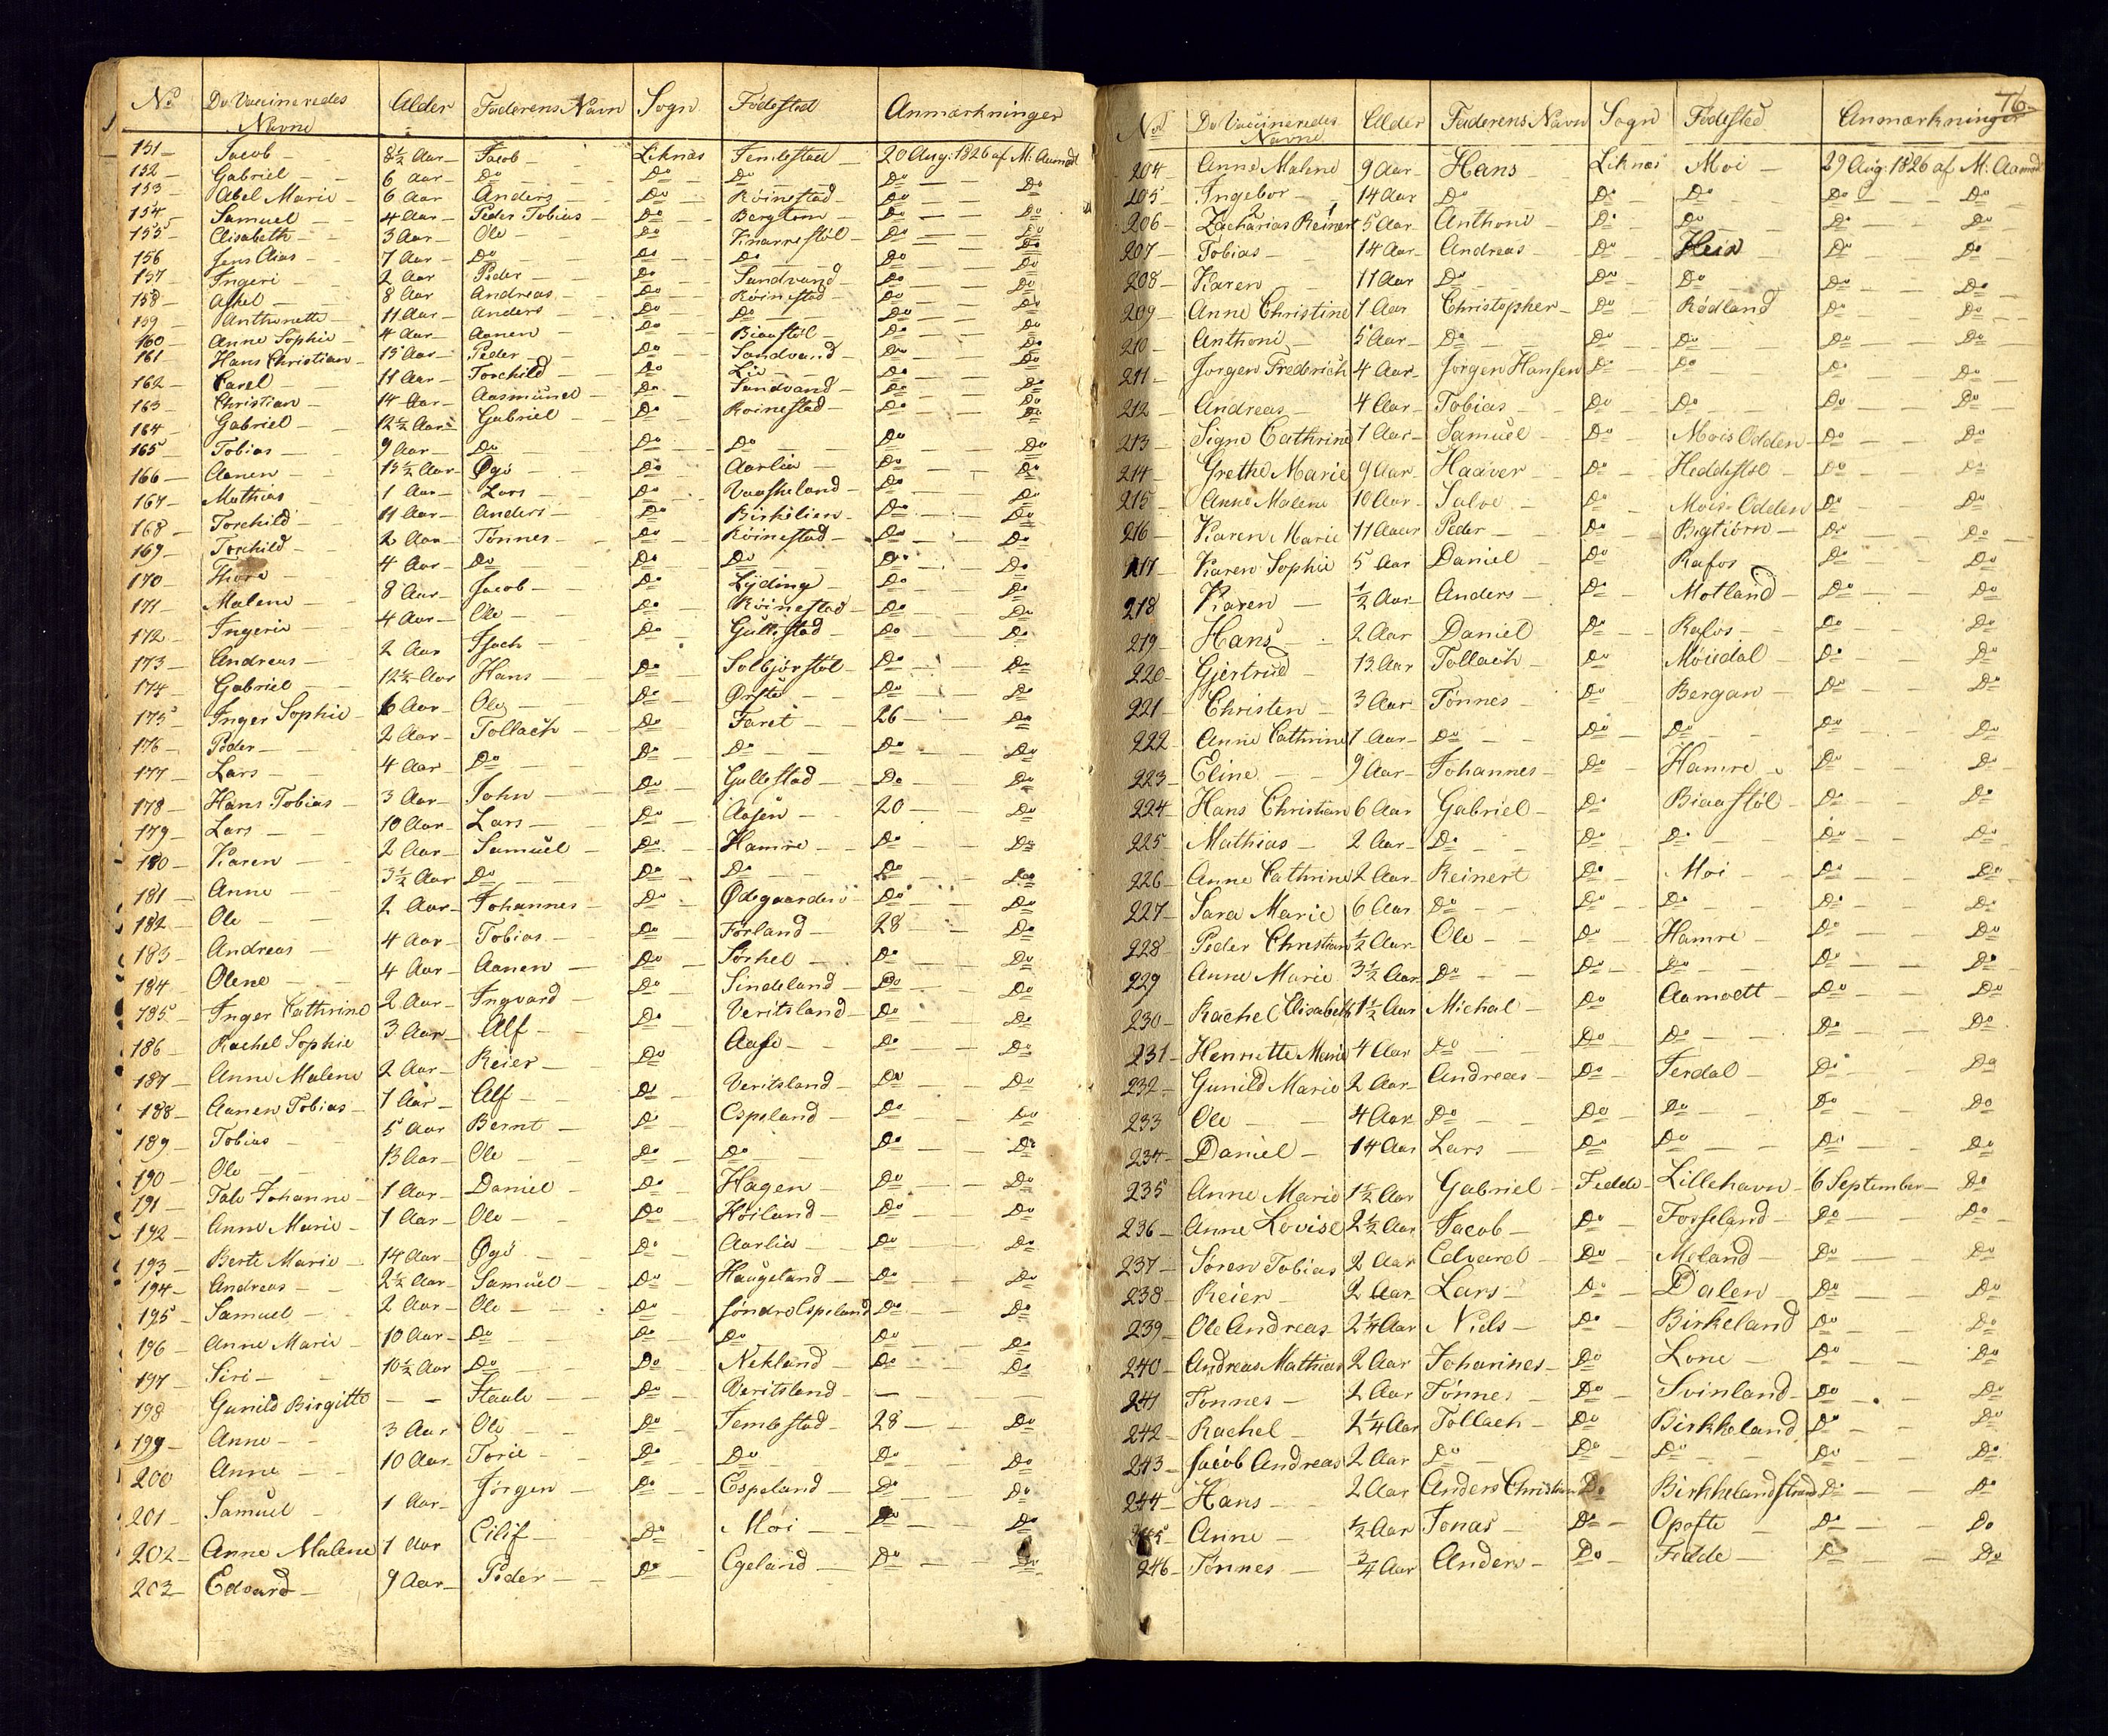 No De Vaccineredes Navne Alder Faderens Navn Sogn Fødestad Anmærkninger
151 Jacob 8½ Aar Jacob Liknæs Femtestad 20 Aug: 1826 af M: Aamodt
152 Gabriel 6 Aar Do Do Do Do Do
153 Abel Marie 6 Aar Anders Do Röinestad Do Do
154 Samuel 4 Aar Peder Tobias Do Bergtorn Do Do
155 Elisabeth 3 Aar Ole Do Knarrestöl Do Do
156 Jens Elias 7 Aar Do Do Do Do Do
157 Ingeri 2 Aar Peder Do Sandvand Do Do
158 Askel 8 Aar Andreas Do Röinestad Do Do
159 Anthonette 11 Aar Anders Do Do Do Do
160 Anne Sophie 4 Aar Aanen Do Biaastöl Do Do
161 Hans Christian 13 Aar Peder Do Sandvand Do Do
162 Carel 11 Aar Torchild Do Lie Do Do
163 Christian 14 Aar Aasmund Do Sandvand Do Do
164 Gabriel 12½ Aar Gabriel Do Roinestad Do Do
165 Tobias 9 Aar Do Do Do Do Do
166 Aanen 13½ Aar Øgo Do Aarlia Do Do
167 Mathias 1 Aar Lars Do Vaasheland Do Do
168 Torchild 11 Aar Anders Do Birkelien Do Do
169 Torchild 2 Aar Tönnes Do Röinestad Do Do
170 Thore 4 Aar Do Do Do Do Do
171 Malene 8 Aar Jacob Do Lyding Do Do
172 Ingerie 4 Aar Ole Do Röinestad Do Do
173 Andreas 2 Aar Isach Do Gullestad Do Do
174 Gabriel 12½ Aar Hans Do Solbjörstöl Do Do
175 Inger Sophie 6 Aar Ole Do Ørstö Do Do
176 Peder 2 Aar Tollach Do Faret 26 Do
177 Lars 4 Aar Do Do Do Do Do
178 Hans Tobias 3 Aar John Do Gullestad Do Do
179 Lars 10 Aar Lars Do Aasen 20 Do
180 Karen 2 Aar Samuel Do Hamre Do Do
181 Anne 3½ Aar Do Do Do Do Do
182 Ole 2 Aar Johannes Do Ødegaarden Do Do
183 Andreas 4 Aar Tobias Do Förland 28 Do
184 Olene 4 Aar Aanen Do Sörhel Do Do
185 Inger Cathrine 2 Aar Ingvard Do Sindeland Do Do
186 Rachel Sophie 3 Aar Alf Do Veritsland Do Do
187 Anne Malene 2 Aar Reier Do Aase Do Do
188 Aanen Tobias 1 Aar Alf Do Veritsland Do Do
189 Tobias 5 Aar Bernt Do Espeland Do Do
190 Ole 13 Aar Ole Do Do Do Do
191 Tale Johanne 1 Aar Daniel Do Hagen Do Do
192 Anne Marie 1 Aar Ole Do Höiland Do Do
193 Berte Marie 14 Aar Øgo Do Aarlia Do Do
194 Andreas 2½ Aar Samuel Do Haugeland Do Do
195 Samuel 2 Aar Ole Do Söndre Espeland Do Do
196 Anne Marie 10 Aar Do Do Do Do Do
197 Siri 10½ Aar Do Do Nekland Do Do
198 Gunild Birgitte — Staale Do Veritsland —
199 Anne 3 Aar Ole Do Femtestad 28 Do
200 Anne 10 Aar Torie Do Do Do Do
201 Samuel 1 Aar Jörgen Do Espeland Do Do
202 Anne Malene 1 Aar Eilif Do Moi Do Do
203 Edvard 9 Aar Peder Do Egeland Do Do
76
No De Vaccineredes Navne Alder Faderens Navn Sogn Fødested Anmærkninger
204 Anne Malene 9 Aar Hans Liknæs Moi 29 Aug: 1826 af M: Aamodt
205 Ingebor 14 Aar Do Do Do Do Do
206 Zacharias Reinert 5 Aar Anthoni Do Do Do Do
207 Tobias 14 Aar Andreas Do Heia Do Do
208 Karen 11 Aar Do Do Do Do Do
209 Anne Christine 1 Aar Christopher Do Rödland Do Do
210 Anthoni 5 Aar Do Do Do Do Do
211 Jørgen Frederich 4 Aar Jørgen Hansen Do Do Do Do
212 Andreas 4 Aar Tobias Do Do Do Do
213 Signe Cathrine 1 Aar Samuel Do Mois Odden Do Do
214 Grethe Marie 9 Aar Haaver Do Heddestöl Do Do
215 Anne Malene 10 Aar Salve Do Mois Odden Do Do
216 Karen Marie 11 Aar Peder Do Bigtiörn Do Do
217 Karen Sophie 5 Aar Daniel Do Rafos Do Do
218 Karen ½ Aar Anders Do Motland Do Do
219 Hans 2 Aar Daniel Do Rafos Do Do
220 Gjertrud 13 Aar Tollach Do Möiedal Do Do
221 Christen 3 Aar Tønnes Do Bergan Do Do
222 Anne Cathrine 1 Aar Do Do Do Do Do
223 Eline 9 Aar Johannes Do Hamre Do Do
224 Hans Christian 6 Aar Gabriel Do Biaastöl Do Do
225 Mathias 2 Aar Do Do Do Do Do
226 Anne Cathrine 2 Aar Reinert Do Moi Do Do
227 Sara Marie 6 Aar Do Do Do Do Do
228 Peder Christian ½ Aar Ole Do Hamre Do Do
229 Anne Marie 3½ Aar Do Do Do Do Do
230 Rachel Elisabeth 1½ Aar Michal Do Aamodt Do Do
231 Hennette Marie 4 Aar Do Do Do Do Do
232 Gunild Marie 2 Aar Andreas Do Ferdal Do Do
233 Ole 4 Aar Do Do Do Do Do
234 Daniel 14 Aar Lars Do Do Do Do
235 Anne Marie 1½ Aar Gabriel Fedde Lillehavn 6 September Do
236 Anne Lovise 2½ Aar Jacob Do Fosseland Do Do
237 Søren Tobias 2 Aar Edvard Do Meland Do Do
238 Reier 2 Aar Lars Do Dalen Do Do
239 Ole Andreas 2¼ Aar Niels Do Birkeland Do Do
240 Andreas Mathias 2 Aar Johannes Do Lone Do Do
241 Tønnes 2 Aar Tønnes Do Svinland Do Do
242 Rachel 2¼ Aar Tollach Do Birkkeland Do Do
243 Jacob Andreas 2 Aar Do Do Do Do Do
244 Hans 2 Aar Anders Christian Do Birkkelandstrand Do Do
245 Anne ½ Aar Jonas Do Opofte Do Do
246 Tønnes ¾ Aar Anders Do Fedde Do Do